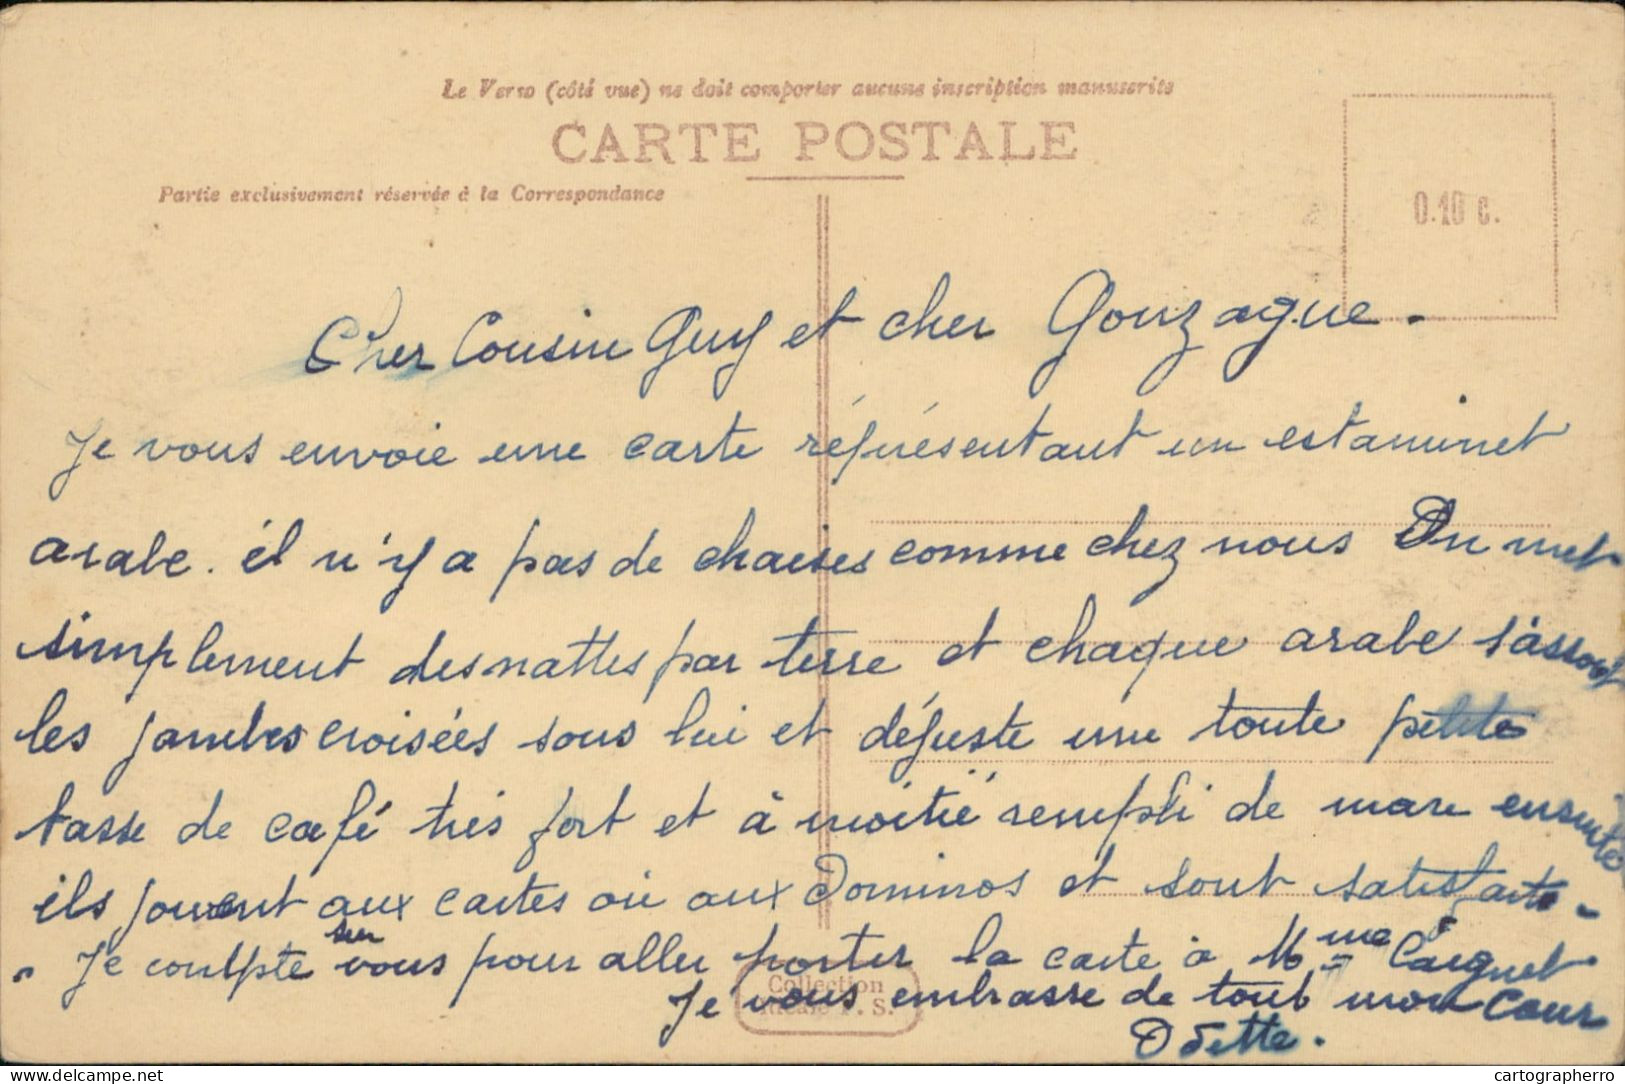 Le Verso (côté vue) ne doit comporter aucune inscription manuscrite
CARTE POSTALE
Partie exclusivement réservée à la Correspondance
0.10 c.
Cher Cousin Guy et cher Gonzague.
Je vous envoie une carte réprésentant un estaminet
arabe. il n'y a pas de chaises comme chez nous On met
simplement des nattes par terre et chaque arabe s'assoit
les jambes croisées sous lui et déguste une toute petite
tasse de café très fort et à moitié rempli de marc ensuite
ils jouent aux cartes ou aux Dominos et sont satisfaits.
- Je coulpte sur vous pour aller porter la carte à Mme Caignet.
Je vous embrasse de tout mon Cour
Odette.
Collection
Idéale P. S.
www.delcampe.net
cartographerro